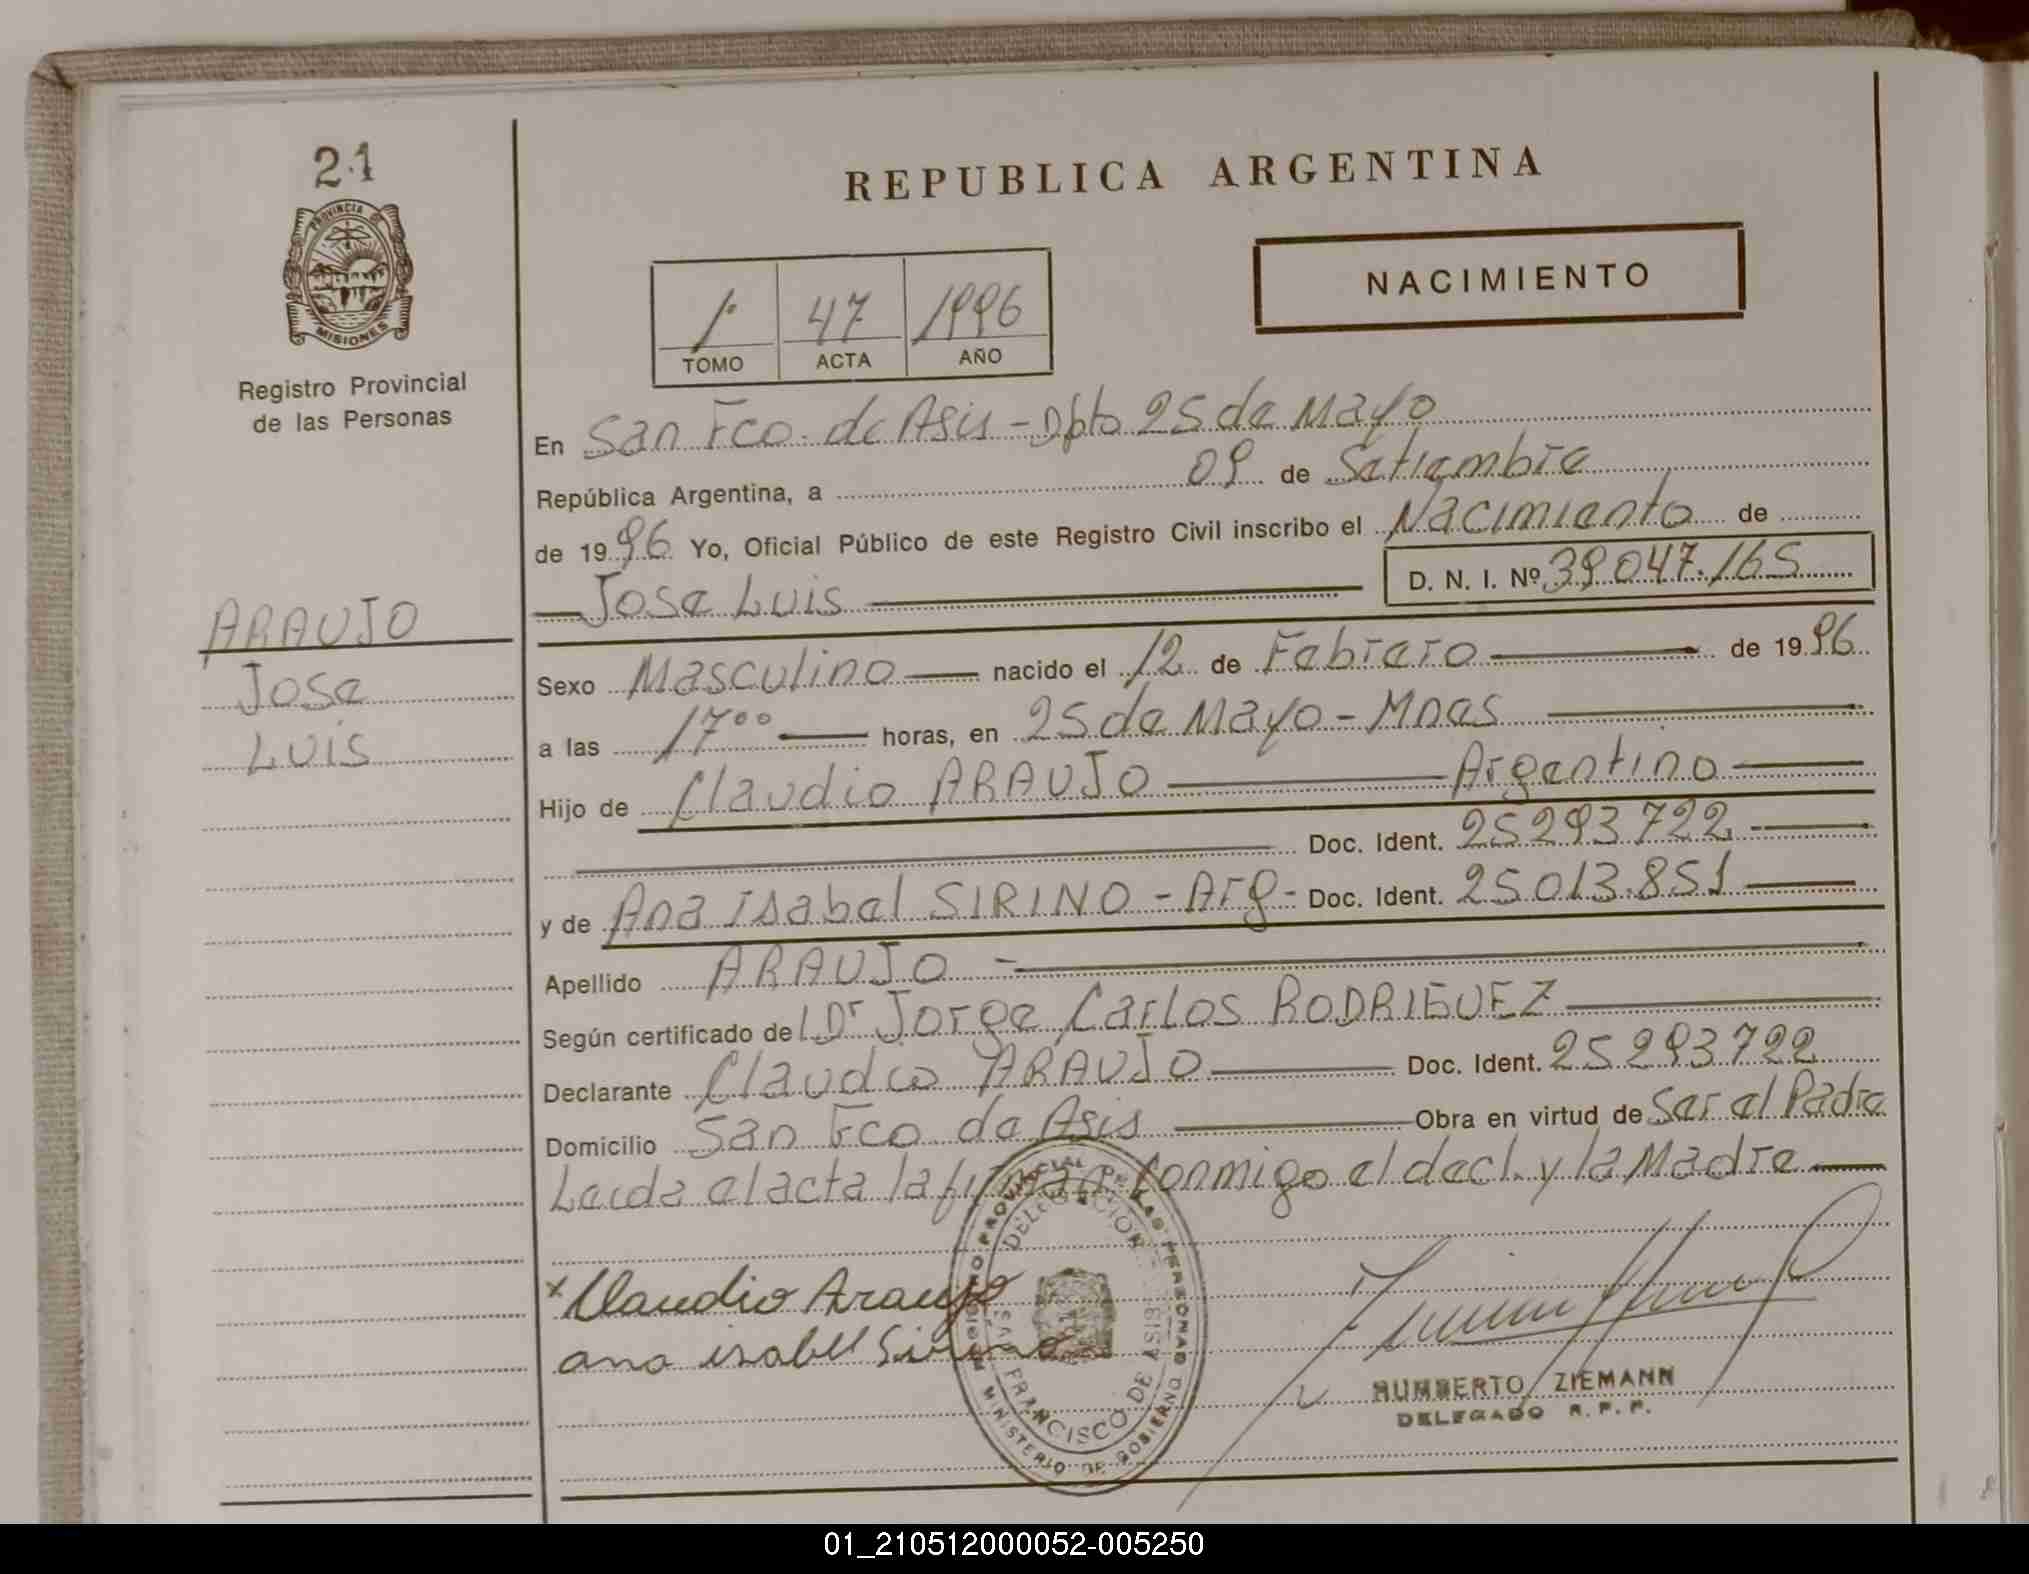 21
PROVINCIA DE
MISIONES
Registro Provincial
de las Personas
REPUBLICA ARGENTINA
NACIMIENTO
1º 47 1996
TOMO ACTA AÑO
En San Fco. de Asis - Dpto 25 de Mayo
República Argentina, a 09 de Setiembre
de 1996 Yo, Oficial Público de este Registro Civil inscribo el Nacimiento de
Jose Luis D. N. I. Nº 39.047.165
ARAUJO
Jose
Luis
Sexo Masculino nacido el 12 de Febrero de 1996
a las 17⁰⁰ horas, en 25 de Mayo - Mnes
Hijo de Claudio ARAUJO Argentino
Doc. Ident. 25293722
y de Ana Isabel SIRINO - Arg - Doc. Ident. 25.013.851
Apellido ARAUJO -
Según certificado del Dr Jorge Carlos RODRIGUEZ
Declarante Claudio ARAUJO Doc. Ident. 25293722
Domicilio San Fco. de Asis Obra en virtud de Ser el Padre
Leida el acta la firman conmigo el decl. y la Madre
x Claudio Araujo
ana isabel Sirino
REGISTRO PROVINCIAL DE LAS PERSONAS
DELEGACION
SAN FRANCISCO DE ASIS
MINISTERIO DE GOBIERNO
HUMBERTO ZIEMANN
DELEGADO R. P. P.
01_210512000052-005250